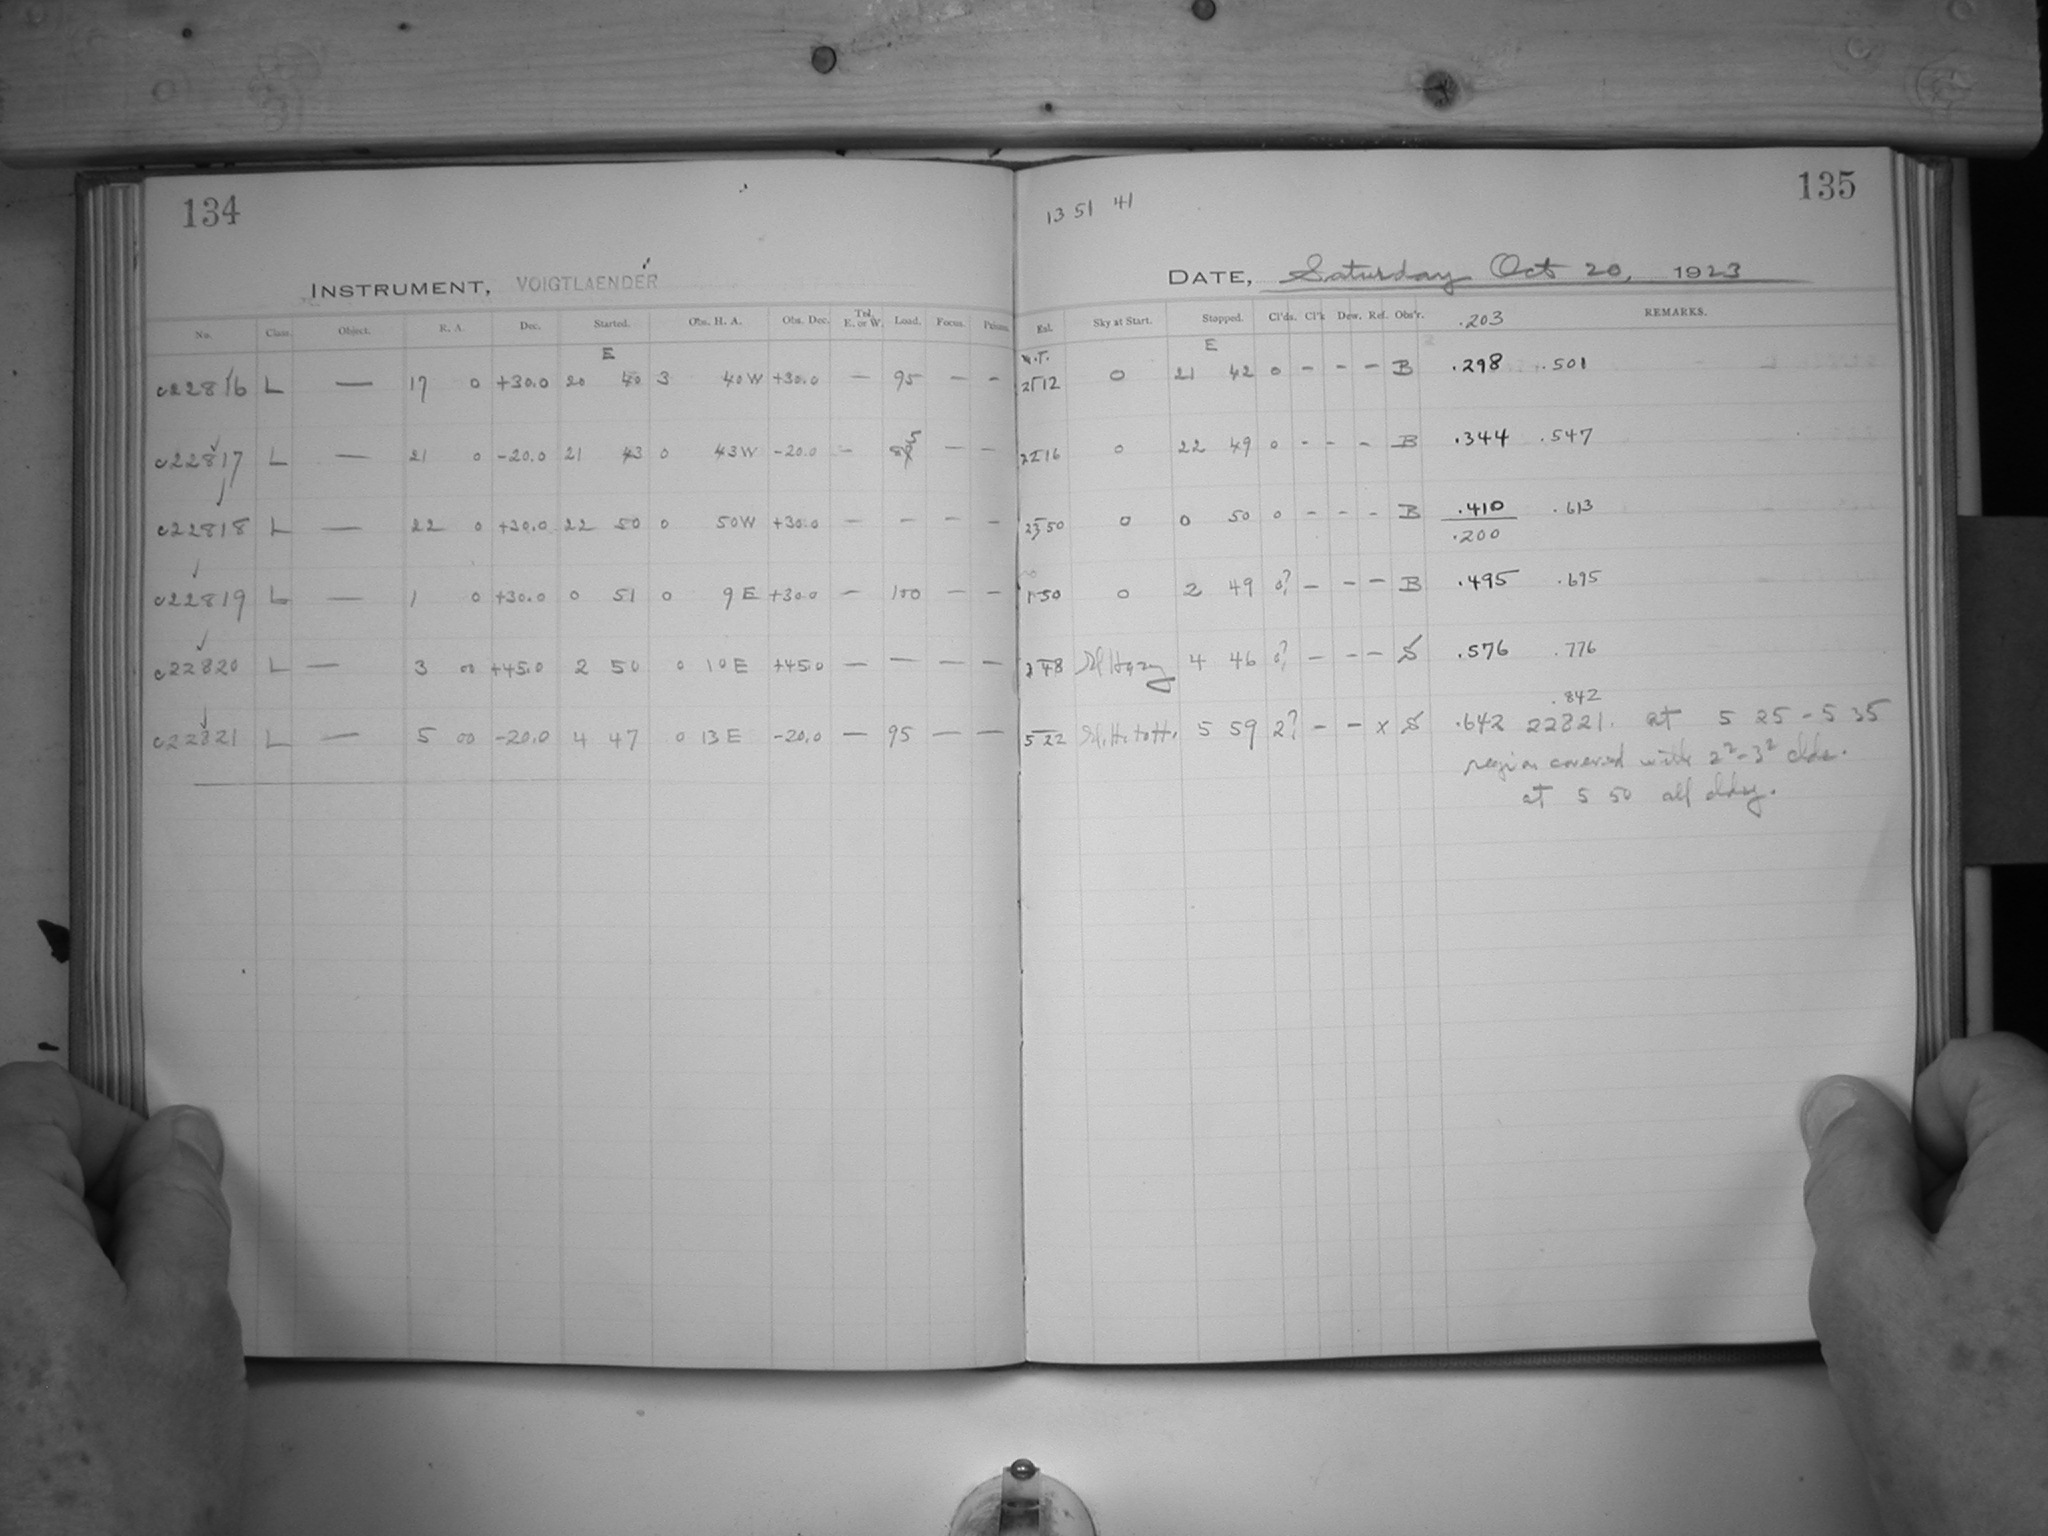 134
INSTRUMENT, VOIGTLAENDER
No. Class. Object. R. A. Dec. Started. Obs. H. A. Obs. Dec. Tel. E. or W. Load. Focus. Prisms.
E
c22816 L — 17 0 +30.0 20 40 3 40 W +30.0 — 95 — —
c22817 L — 21 0 -20.0 21 43 0 43 W -20.0 — — —
c22818 L — 22 0 +30.0 22 50 0 50 W +30.0 — — — —
c22819 L — 1 0 +30.0 0 51 0 9 E +30.0 — 100 — —
c22820 L — 3 00 +45.0 2 50 0 10 E +45.0 — — — —
c22821 L — 5 00 -20.0 4 47 0 13 E -20.0 — 95 — —
135
13 51 41
DATE, Saturday Oct 20, 1923
Exl. Sky at Start. Stopped. Cl'ds. Cl'k Dew. Ref. Obs'r. .203 REMARKS.
E
0 21 42 0 - - - B .298 .501
0 22 49 0 - - - B .344 .547
23 50 0 0 50 0 - - - B .410 .613
.200
1 50 0 2 49 0? - - - B .495 .695
Hazy 4 46 0? - - - S .576 .776
.842
5 22 5 59 2? - - x S .642 22821. at 5 25 - 5 35
region covered with 2² - 3² clds.
at 5 50 all cldy.